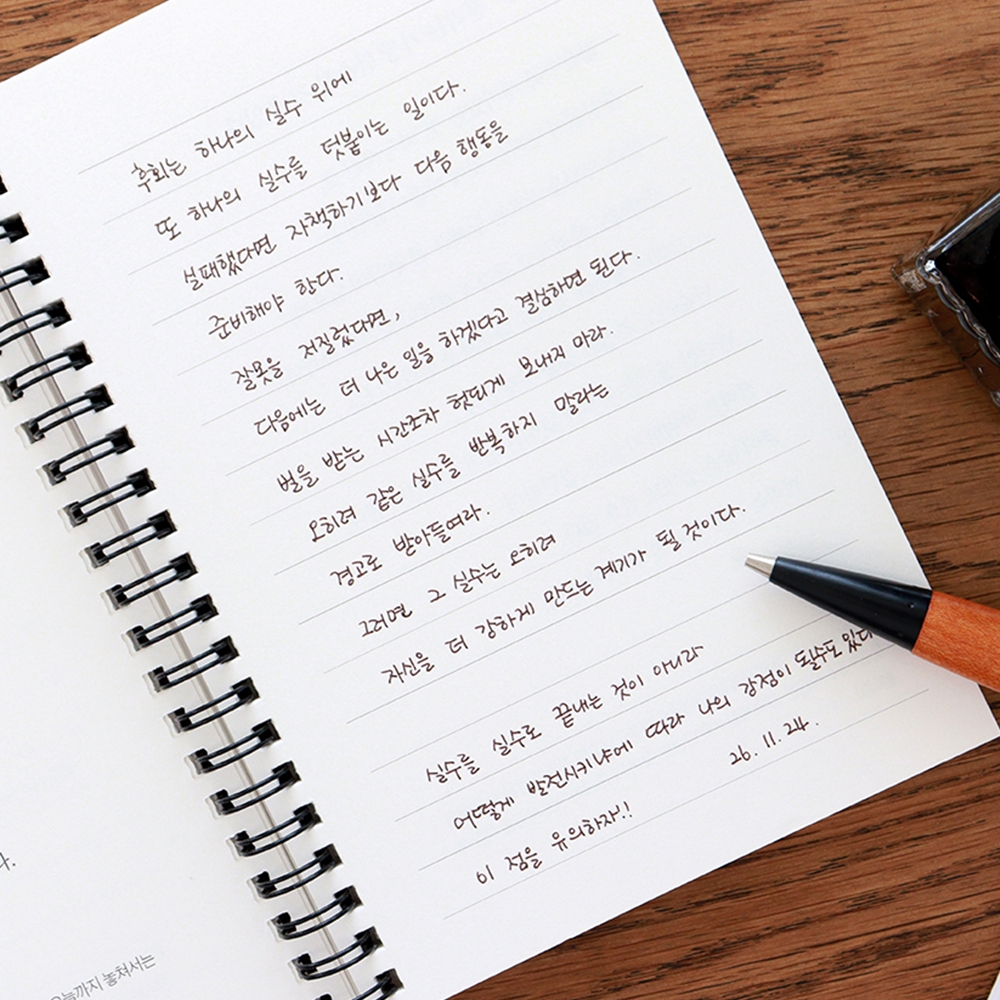 후회는 하나의 실수 위에
또 하나의 실수를 덧붙이는 일이다.
실패했다면 자책하기보다 다음 행동을
준비해야 한다.
잘못을 저질렀다면,
다음에는 더 나은 일을 하겠다고 결심하면 된다.
벌을 받는 시간조차 헛되게 보내지 마라.
오히려 같은 실수를 반복하지 말라는
경고로 받아들여라.
그러면 그 실수는 오히려
자신을 더 강하게 만드는 계기가 될 것이다.
실수를 실수로 끝내는 것이 아니라
어떻게 발전시키냐에 따라 나의 강점이 될수도 있다
이 점을 유의하자!!
26. 11. 24.
다.
오늘까지 놓쳐서는